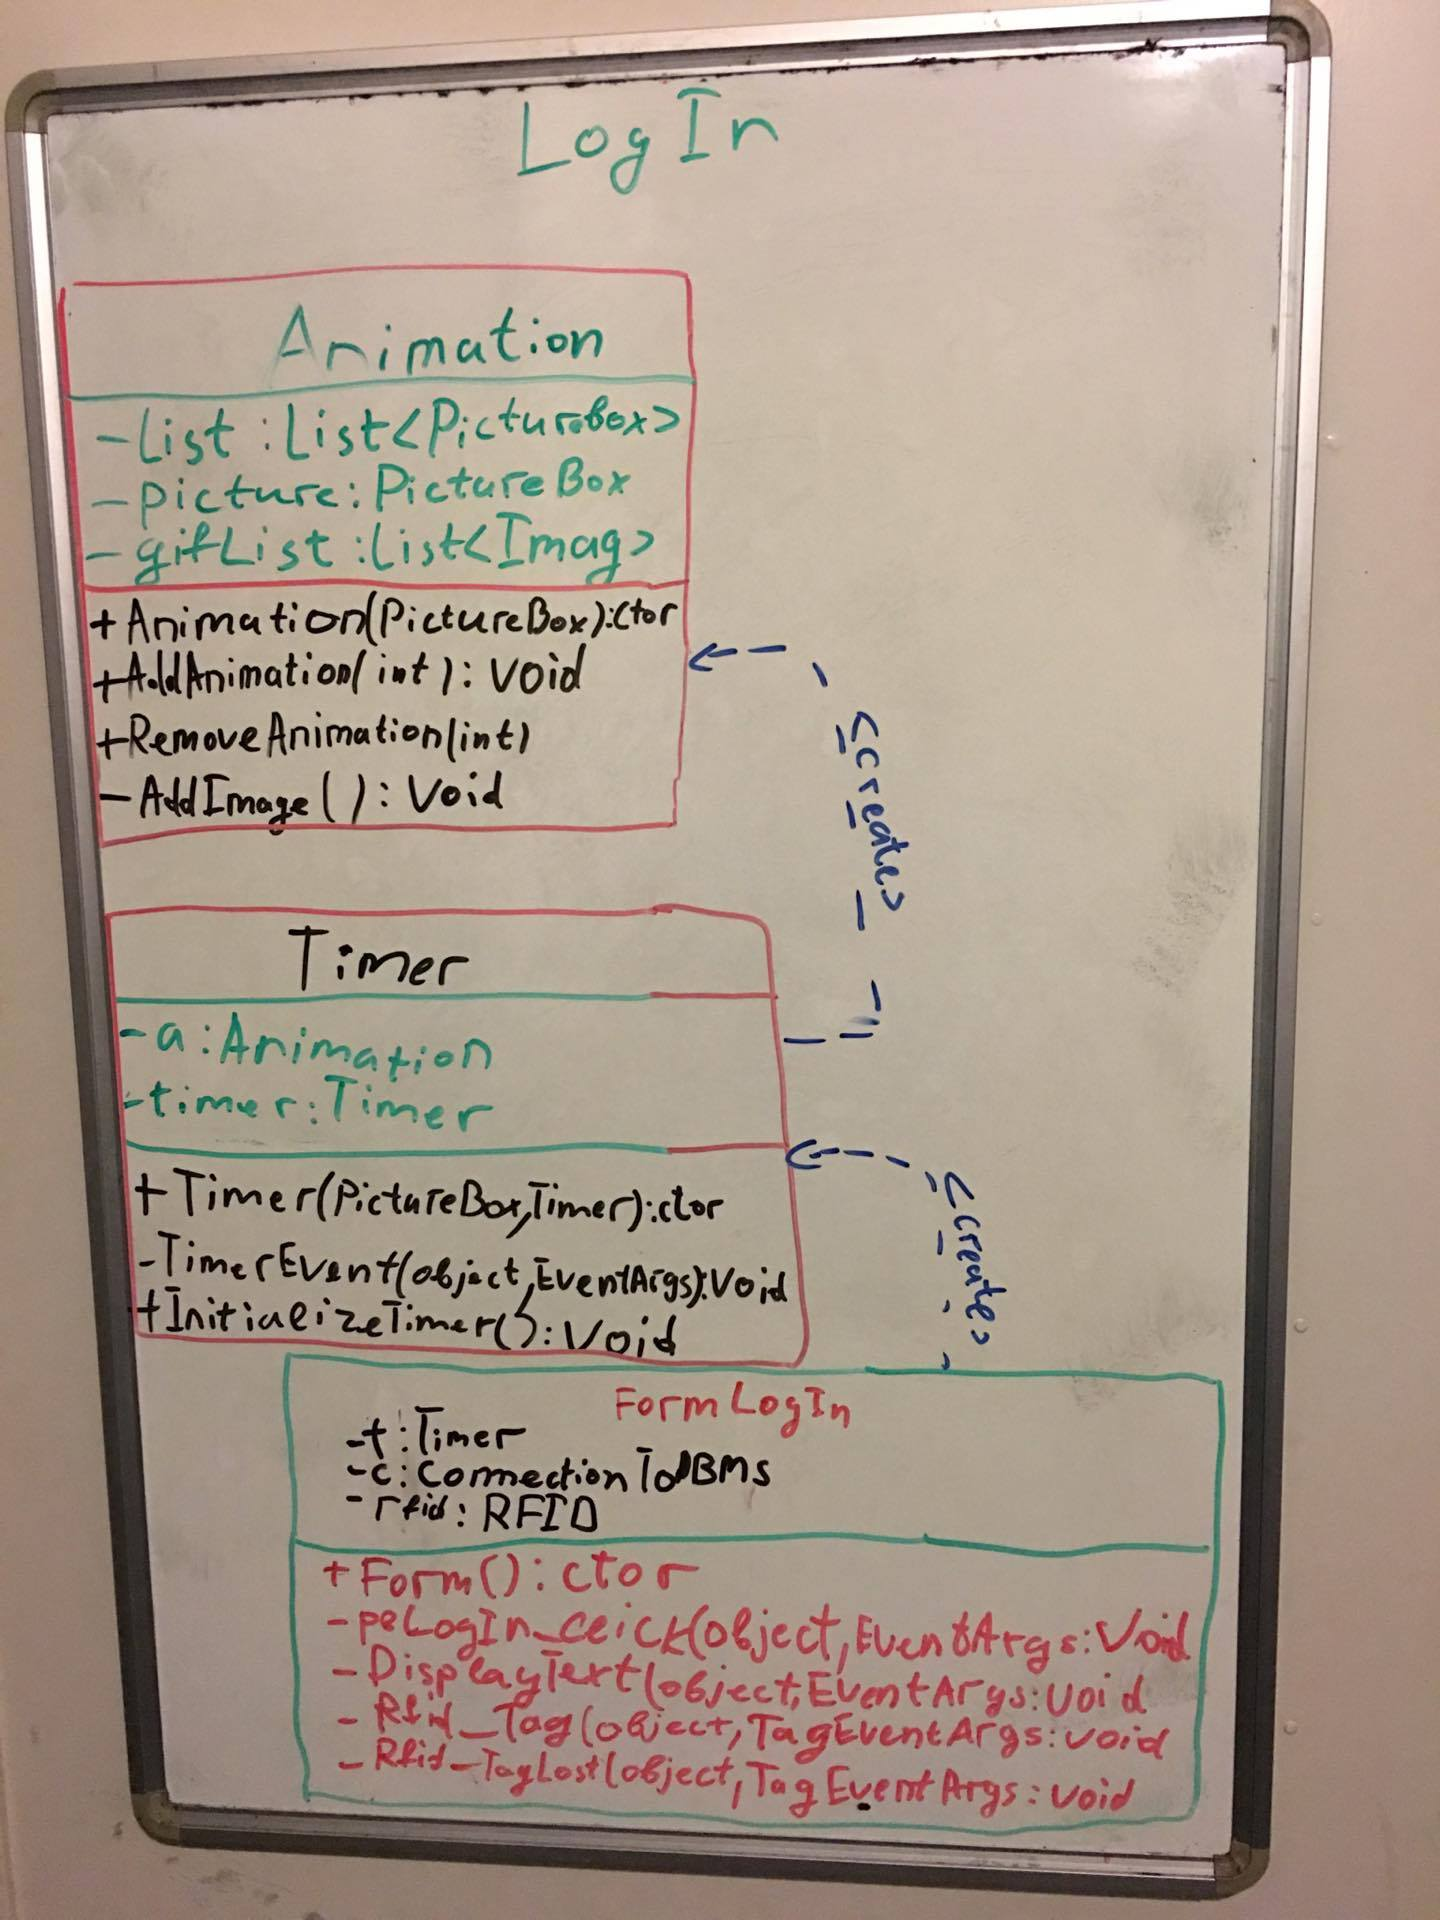 LogIn
Animation
-List:List<Picturebox>
-picture:PictureBox
-gifList:List<Imag>
+Animation(PictureBox):ctor
+AddAnimation(int):void
+RemoveAnimation(int)
-AddImage():Void
<creates>
Timer
-a:Animation
-timer:Timer
+Timer(PictureBox,Timer):ctor
-TimerEvent(object,EventArgs):Void
+InitializeTimer():Void
<creates>
FormLogIn
-t:Timer
-c:ConnectionToDBMS
-rfid:RFID
+Form():ctor
-pbLogIn_click(object,EventArgs:Void
-DisplayText(object,EventArgs:void
-Rfid_Tag(object,TagEventArgs:void
-Rfid_TagLost(object,TagEventArgs:void